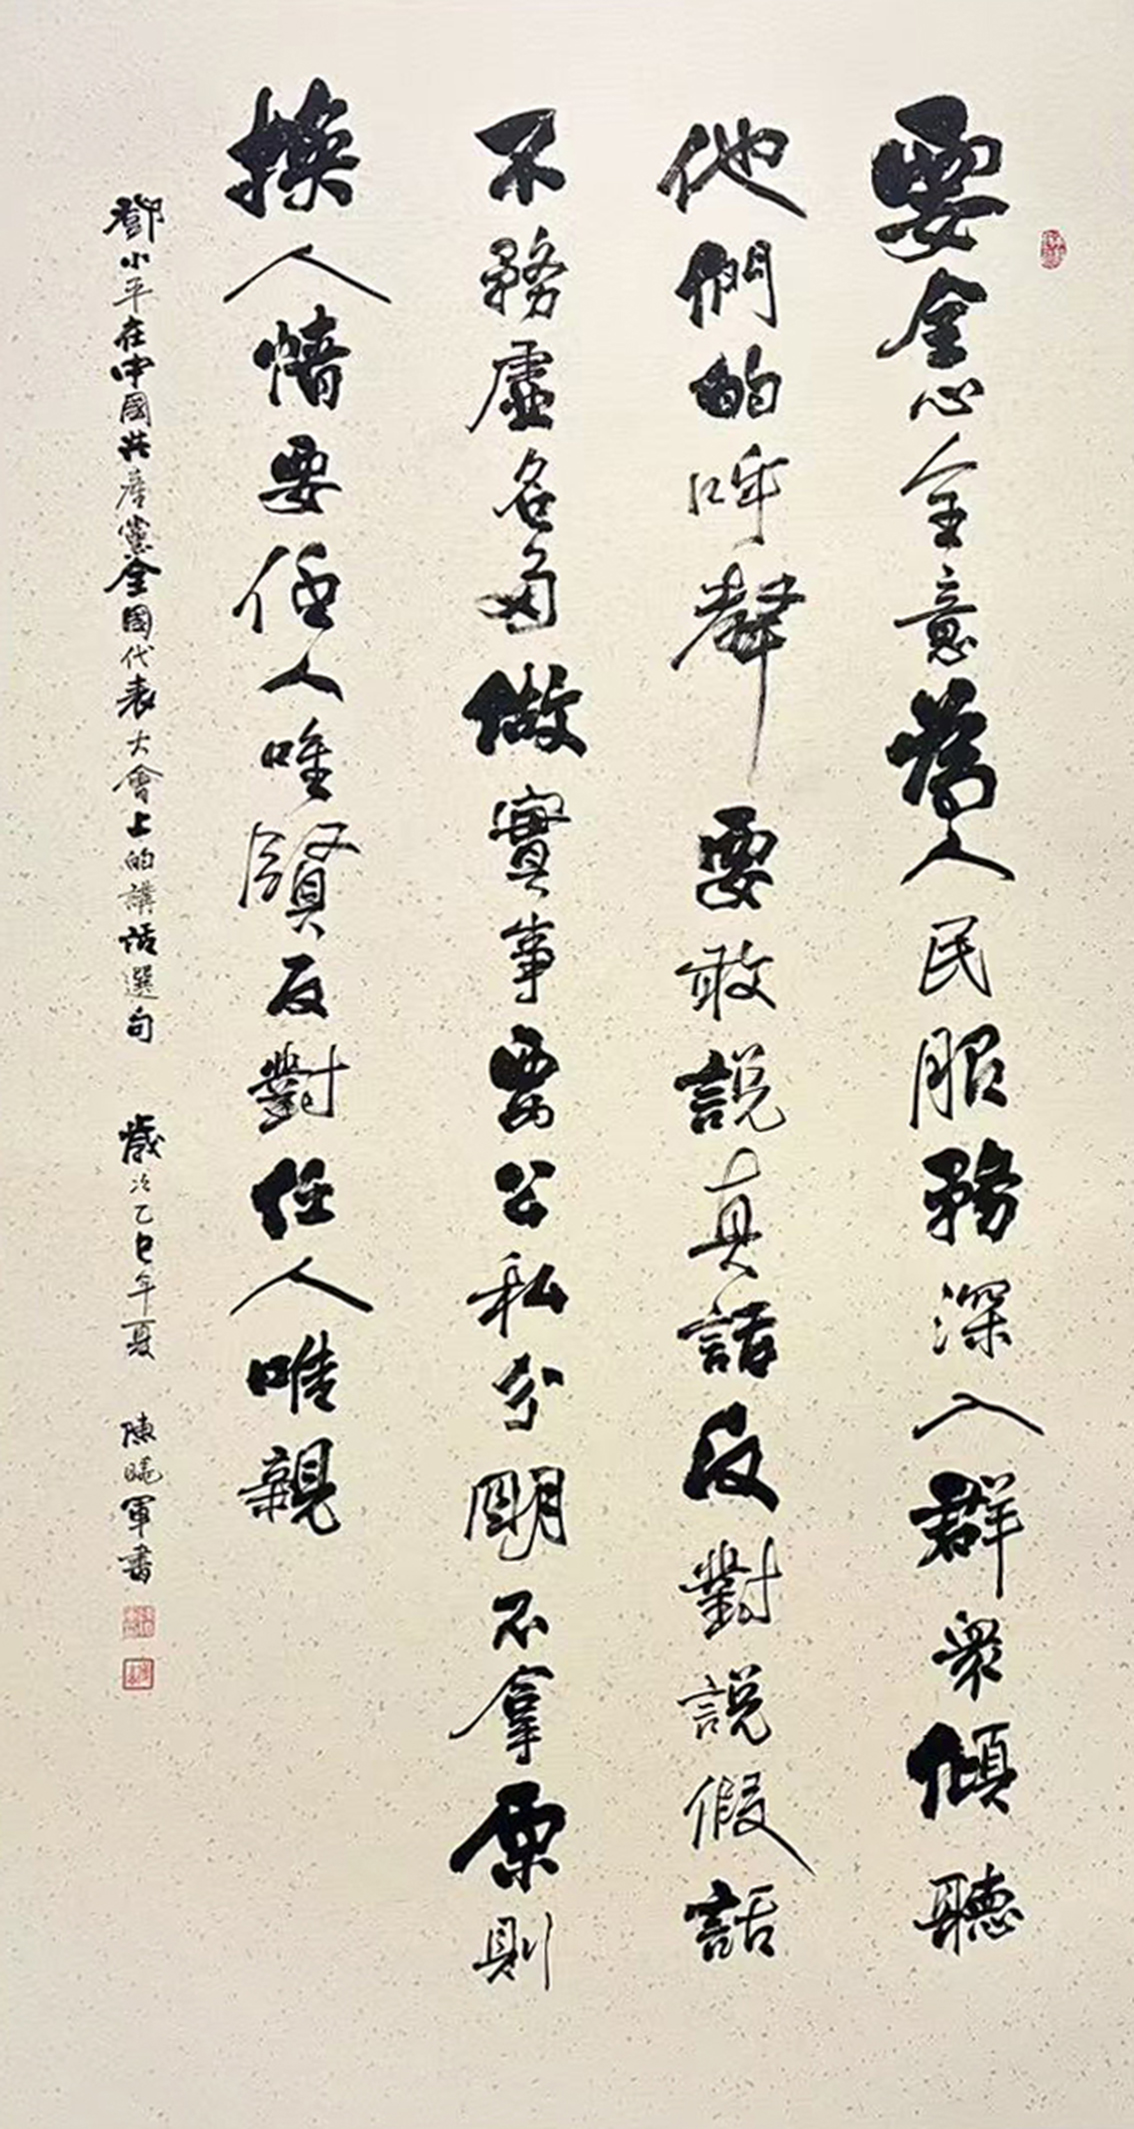 要全心全意為人民服務深入群衆傾聽
他們的呼聲要敢説真話反對説假話
不務虛名多做實事要公私分明不拿原則
換人情要任人唯賢反對任人唯親
鄧小平在中國共產黨全國代表大會上的講話選句 歲次乙巳年夏 陳曉軍書